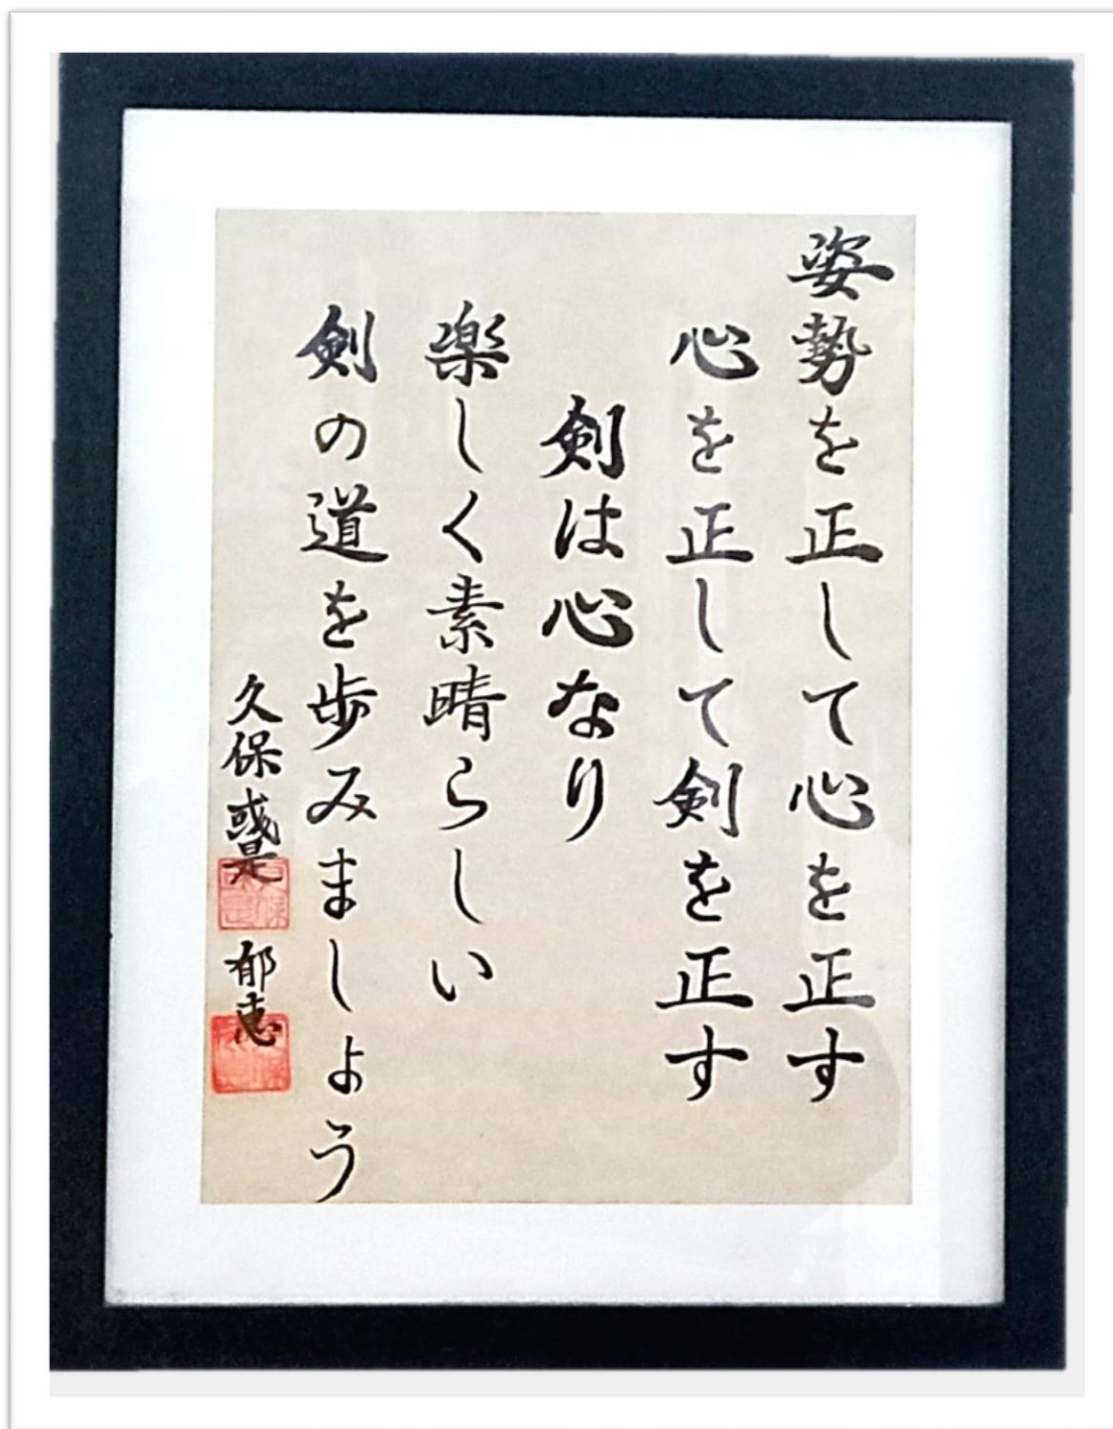 姿勢を正して心を正す
心を正して剣を正す
剣は心なり
楽しく素晴らしい
剣の道を歩みましょう
久保 郁恵